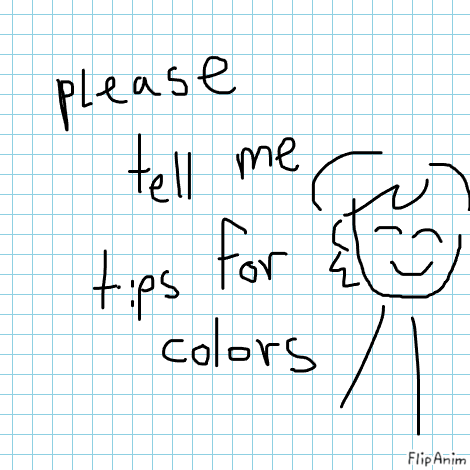 please
tell me
tips for
colors
FlipAnim